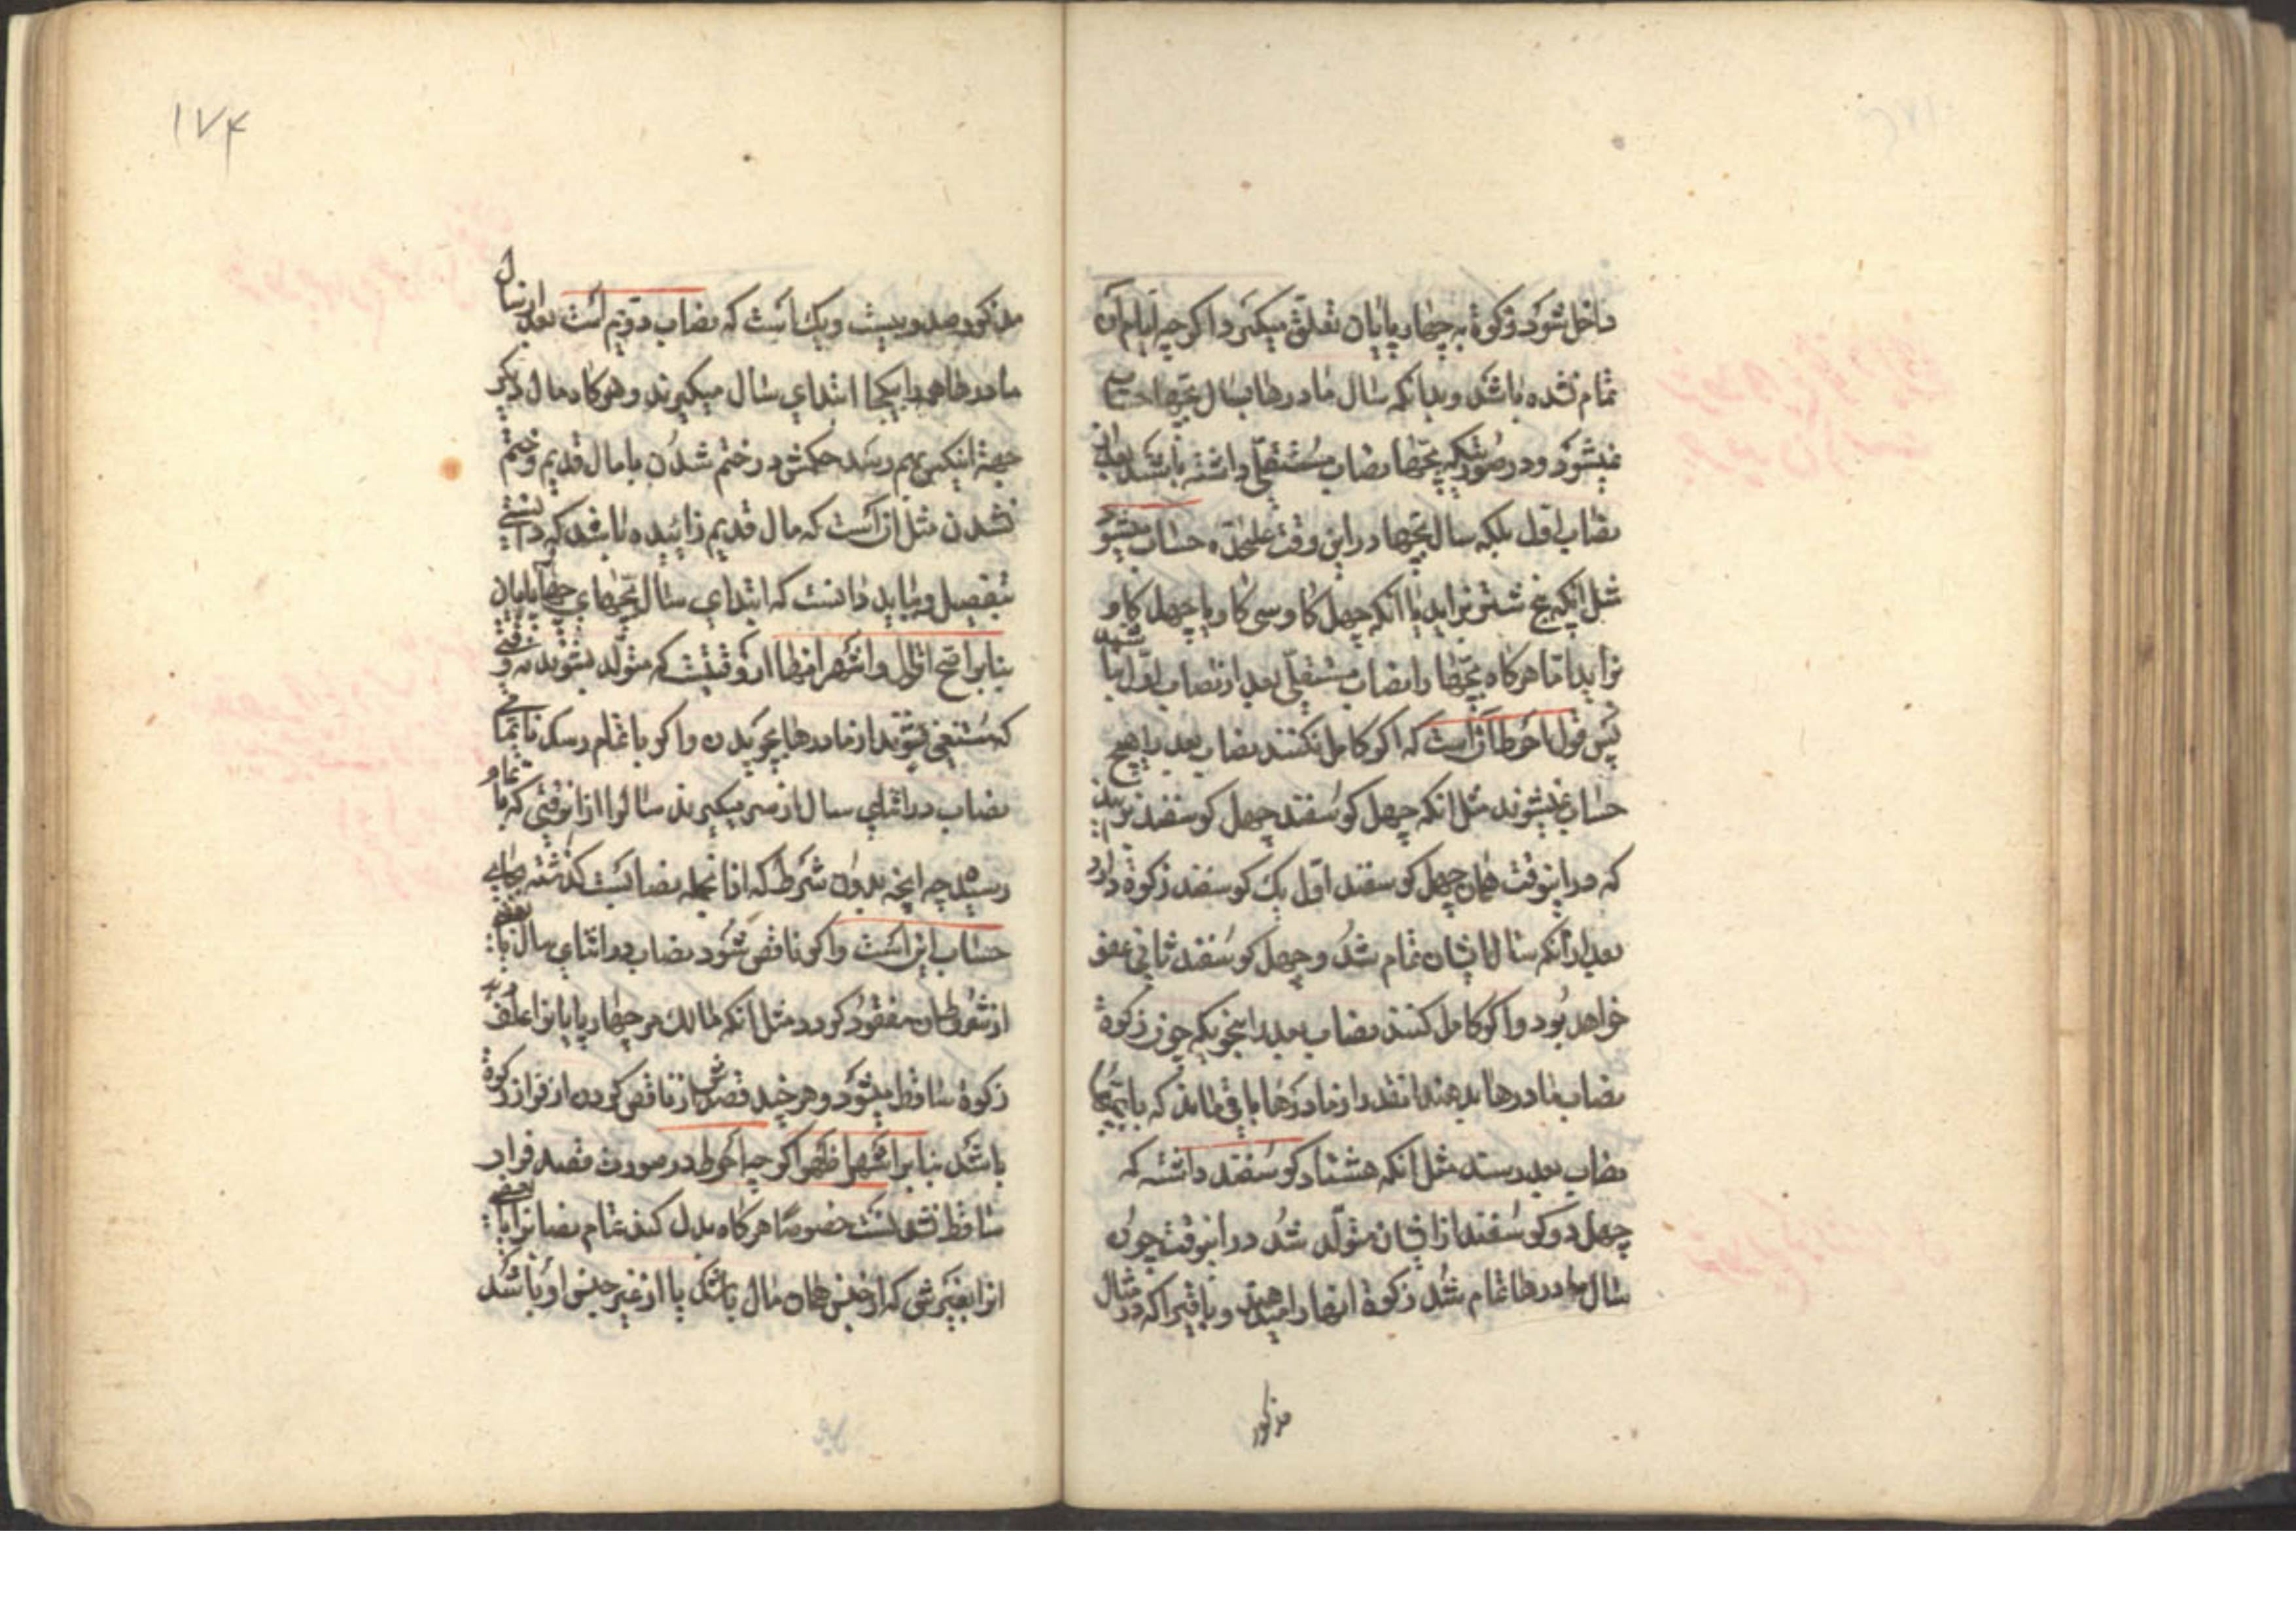 داخل شود زکوة به چهارپایان تعلق میکیرد اکرچه ایام آن
تمام نشده باشد و بدانکه سال مادرها بسال بچّها حساب
نمیشود و در صورتیکه بچّها نصاب مستقلّی داشته باشند بعد از
نصاب اوّل بلکه سال بچّها در این وقت علیحدّه حساب میشود
مثل آنکه پنج شتر بزاید یا آنکه چهل کاو سی کاو یا چهل کاو
بزاید امّا هرکاه بچّها را نصاب مستقلّی بعد از نصاب اوّل نباشد
پس قول احوط آن است که اکر کامل نکنند نصاب بعد را هیچ
حساب نمیشوند مثل انکه چهل کوسفند چهل کوسفند بزایند
که در اینوقت همان چهل کوسفند اوّل یک کوسفند زکوة دارد
بعد از آنکه سال ایشان تمام شد و چهل کوسفند ثانی عفو
خواهد بود و اکر کامل کنند نصاب بعد را بنحویکه چون زکوة
نصاب مادرها بدهند انقدر از مادرها باقی ماند که با بچّها
نصاب بعد رسند مثل انکه هشتاد کوسفند داشته که
چهل دو کوسفند از ایشان متولّد شد در اینوقت چون
سال مادرها تمام شد زکوة انها را میدهند و باقیرا که در مثال
مذکور
۱۷۴
مذکور صد و بیست و یک است که نصاب دویّم است بعد از سال
مادرها همه را یکجا ابتدای سال میکیرند و هرکاه مال دیکر
جهة اینکس بهم رسد حکمش در ختم شدن با مال قدیم و ختم
نشدن مثل ان است که مال قدیم زاییده باشد که دانستی
بتفصیل و بباید دانست که ابتدای سال بچّهای چهارپایان
بنابر اصح اقوال و اشهر انها از وقتیست که متولّد بشوند نه وقتی
که مستغنی بشوند از مادرها بچریدن و اکر ناتمام رسد تا تمامی
نصاب در اثنای سال از سر میکیرند سال را از انوقتی که تمام
رسیده چه انچه بدون شرط که از انجمله نصابیست کذشته
حساب این است و اکر ناقص شود نصاب در اثنای سال یا بعضی
از شروط ان مفقود کردد مثل انکه مالک مر چهارپایانرا علف دهد
زکوة ساقط میشود و هرچند قصدش از ناقص کردن از فرار زکوة
باشد بنابر اشهر اظهر اکرچه احوط در صورت قصد فرار
ساقط نشدنست خصوصًا هرکاه بدل کند تمام نصابرا یا بعضی
انرا بغیر شی که از جنس همان مال باشد یا از غیر جنس او باشد